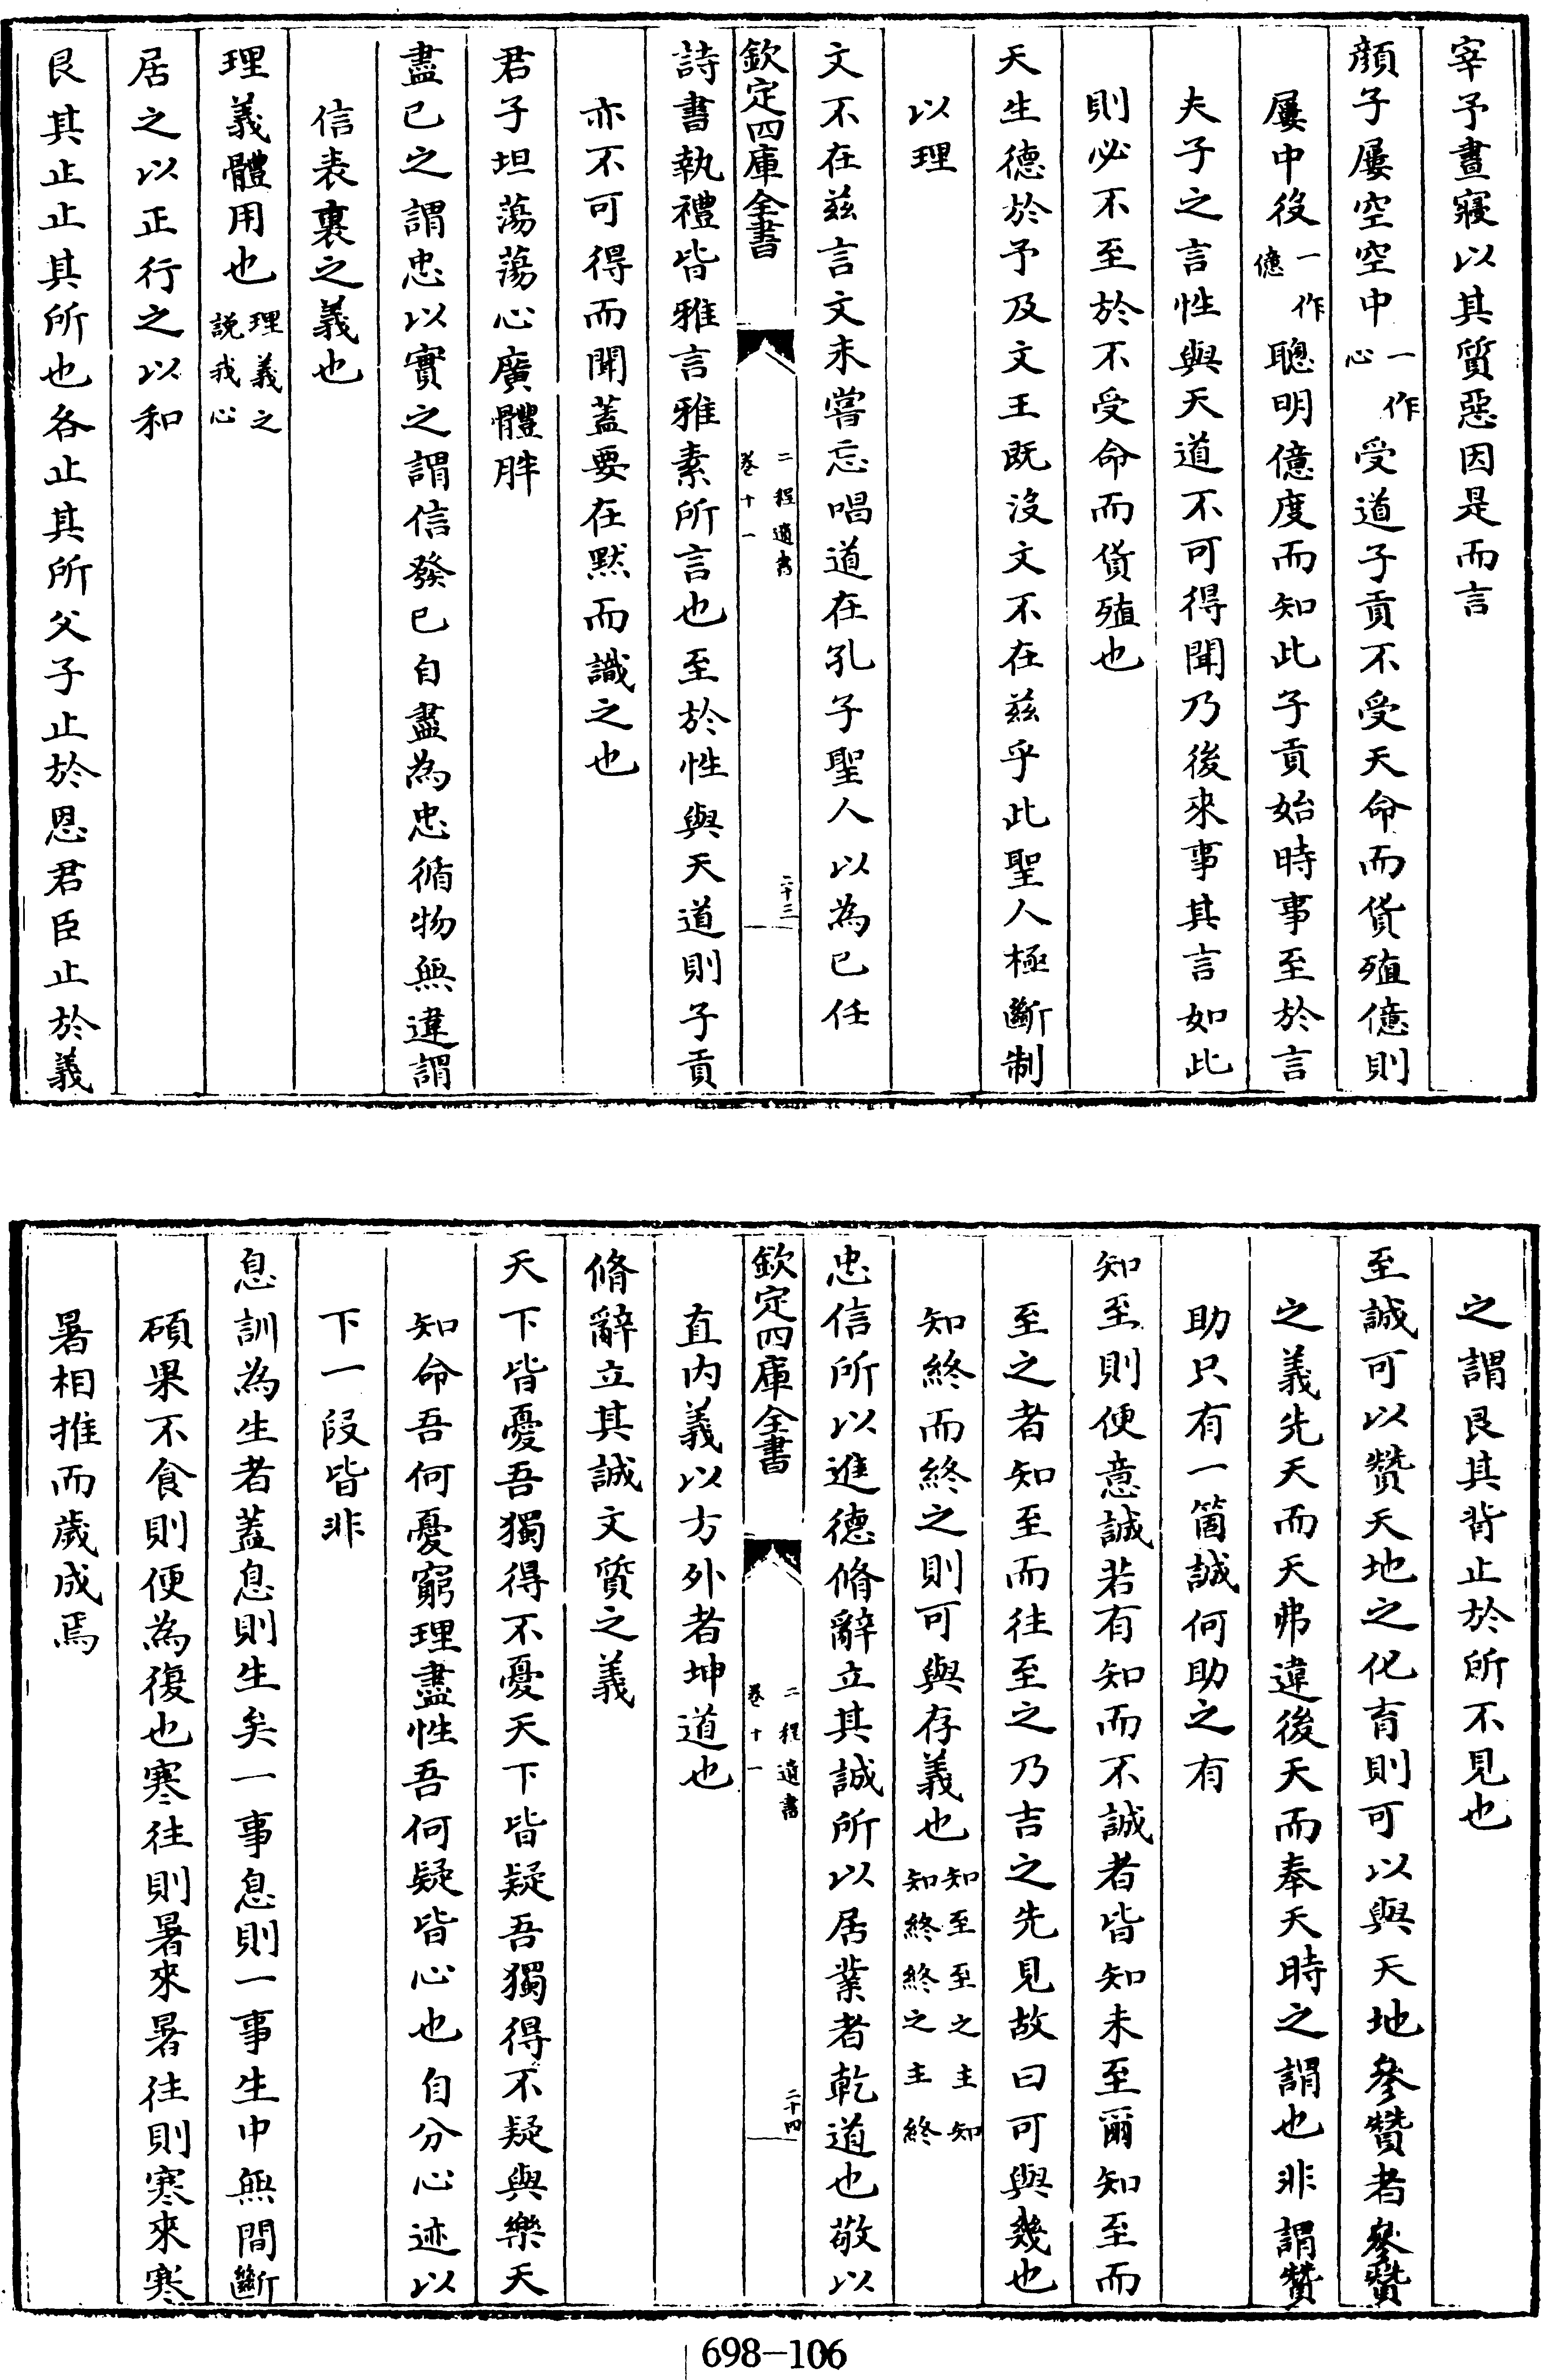 宰予晝寢以其質惡因是而言
顔子屢空空中一作心受道子貢不受天命而貨殖億則
屢中役一作億聰明億度而知此子貢始時事至於言
夫子之言性與天道不可得聞乃後來事其言如此
則必不至於不受命而貨殖也
天生德於予及文王既沒文不在兹乎此聖人極斷制
以理
文不在兹言文未嘗忘唱道在孔子聖人以為已任
欽定四庫全書 二程遺書 卷十一 二十三
詩書執禮皆雅言雅素所言也至於性與天道則子貢
亦不可得而聞蓋要在默而識之也
君子坦蕩蕩心廣體胖
盡已之謂忠以實之謂信發已自盡為忠循物無違謂
信表裏之義也
理義體用也理義之說我心
居之以正行之以和
艮其止止其所也各止其所父子止於恩君臣止於義
之謂艮其背止於所不見也
至誠可以贊天地之化育則可以與天地參贊者參贊
之義先天而天弗違後天而奉天時之謂也非謂贊
助只有一箇誠何助之有
知至則便意誠若有知而不誠者皆知未至爾知至而
至之者知至而往至之乃吉之先見故曰可與幾也
知終而終之則可與存義也知至至之主知知終終之主終
忠信所以進德脩辭立其誠所以居業者乾道也敬以
欽定四庫全書 二程遺書 卷十一 二十四
直内義以方外者坤道也
脩辭立其誠文質之義
天下皆憂吾獨得不憂天下皆疑吾獨得不疑與樂天
知命吾何憂窮理盡性吾何疑皆心也自分心迹以
下一段皆非
息訓為生者蓋息則生矣一事息則一事生中無間斷
碩果不食則便為復也寒往則暑來暑往則寒來寒
暑相推而歲成焉
698-106